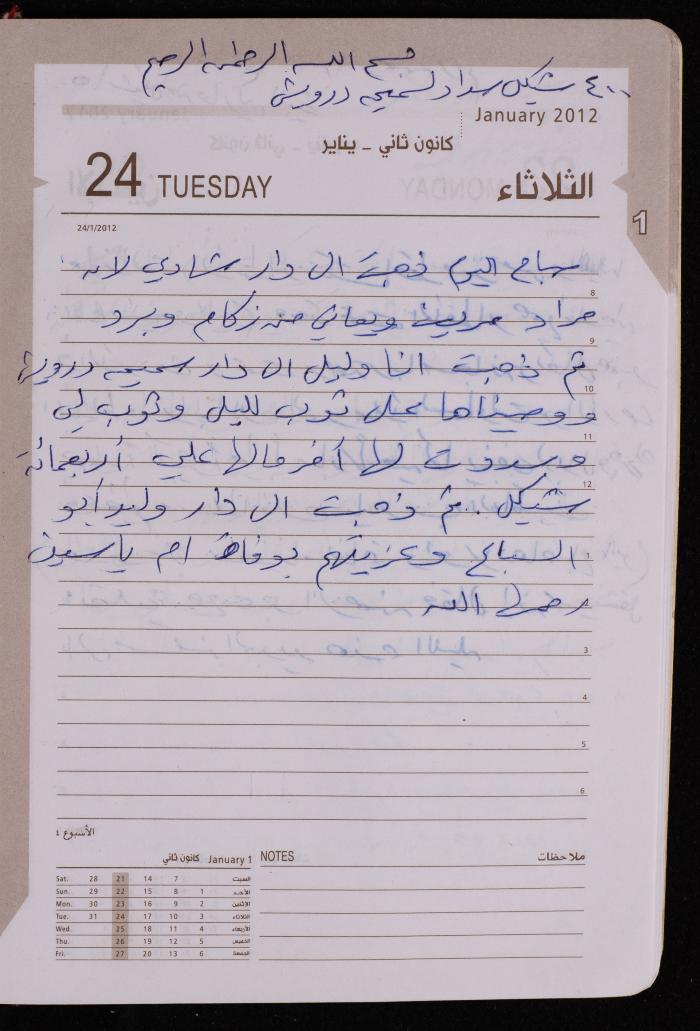 بسم الله الرحمن الرحيم
٤٠٠ شيكل سداد لسميحه درويش
January 2012
كانون ثاني - يناير
24 TUESDAY الثلاثاء
1
24/1/2012
سهام اليوم ذهبت الى دار شادي لانه
8
مراد مريض ويعاني من زكام وبرد
9
ثم ذهبت انا وليل الى دار سميحه درويش
10
ووصيناها بعمل ثوب لليل وثوب لي
11
وسددت لها آخر مالها علي أربعمائة
12
شيكل. ثم ذهبت الى دار وليد أبو
السباع وعزيتهم بوفاة ام ياسين
1
رحمها الله
2
3
4
5
6
الأسبوع ٤
January 1 كانون ثاني
Sat. 28 21 14 7 السبت
Sun. 29 22 15 8 1 الأحد
Mon. 30 23 16 9 2 الإثنين
Tue. 31 24 17 10 3 الثلاثاء
Wed. 25 18 11 4 الأربعاء
Thu. 26 19 12 5 الخميس
Fri. 27 20 13 6 الجمعة
NOTES ملاحظات